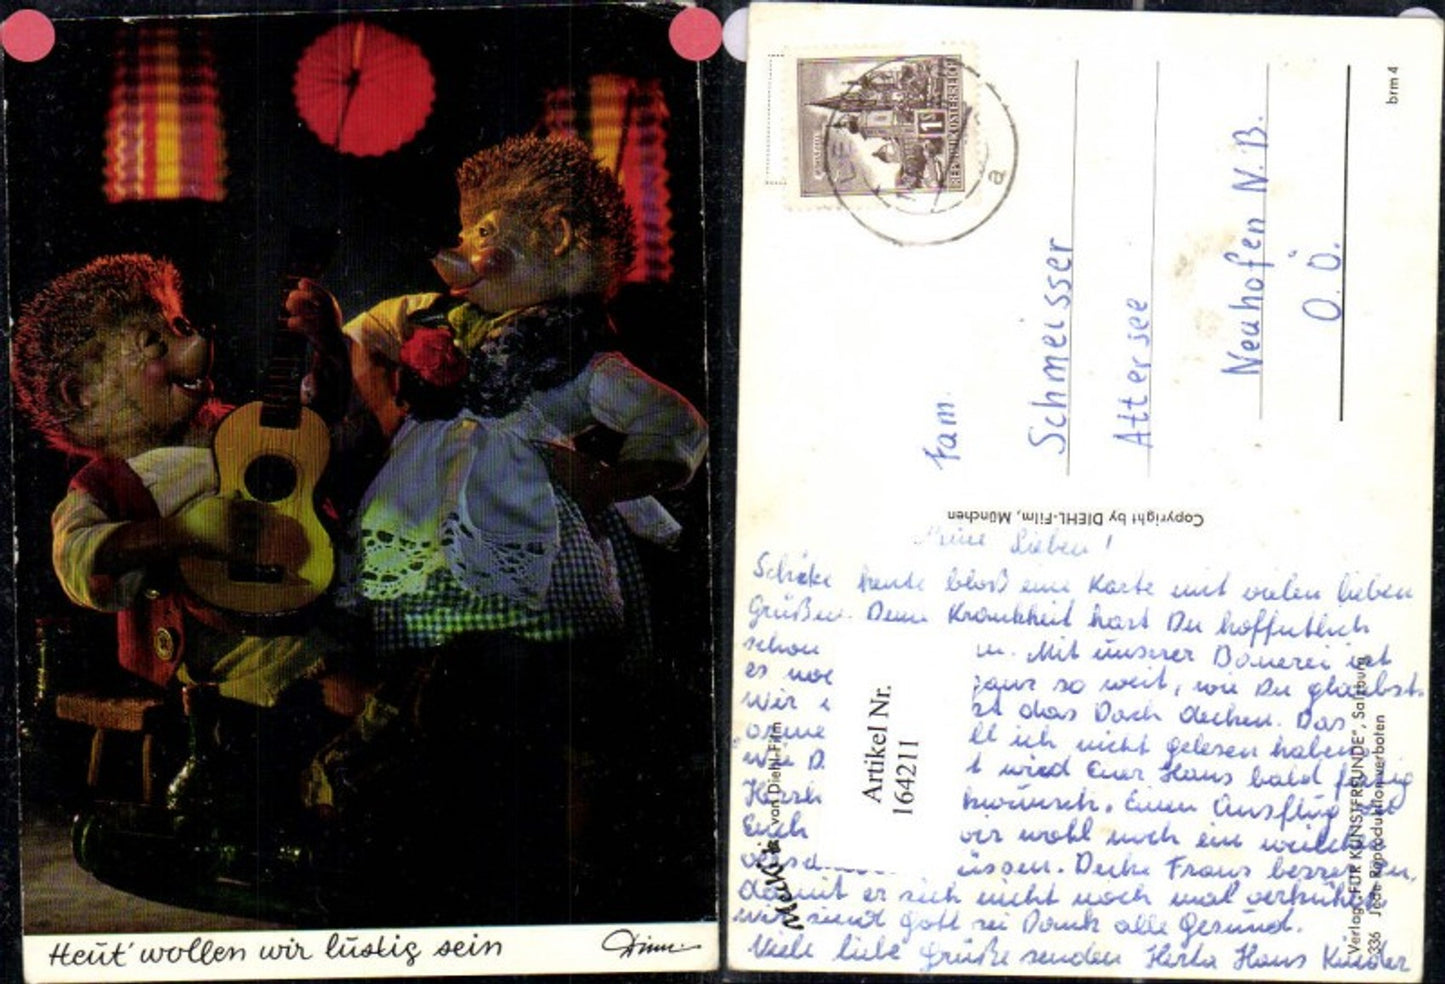 Heut' wollen wir lustig sein
Diehl
REPUBLIK ÖSTERREICH
1S
a
brm 4
Fam.
Schmeisser
Attersee
Neuhofen N. 13.
O. Ö.
Copyright by DIEHL-Film, München
Meine Lieben!
Schicke heute bloß eine Karte mit vielen lieben
Grüßen. Deine Krankheit hast Du hoffentlich
schon Mit unserer Bauerei ist
es so weit, wie Du glaubst.
Wir das Dach decken. Das
ich nicht gelesen haben
wie D. wird Euer Haus bald fertig
Einen Ausflug zu
Euch wir wohl noch ein
müssen. Decke Franz besser
damit er sich nicht noch mal verkühlt.
wir sind Gott sei Dank alle gesund.
Viele liebe Grüße senden Herta Hans Kinder
Artikel Nr.
164211
Mecki von Diehl-Film
Verlag „FÜR KUNSTFREUNDE", Salzburg
336 Jede Reproduktion verboten